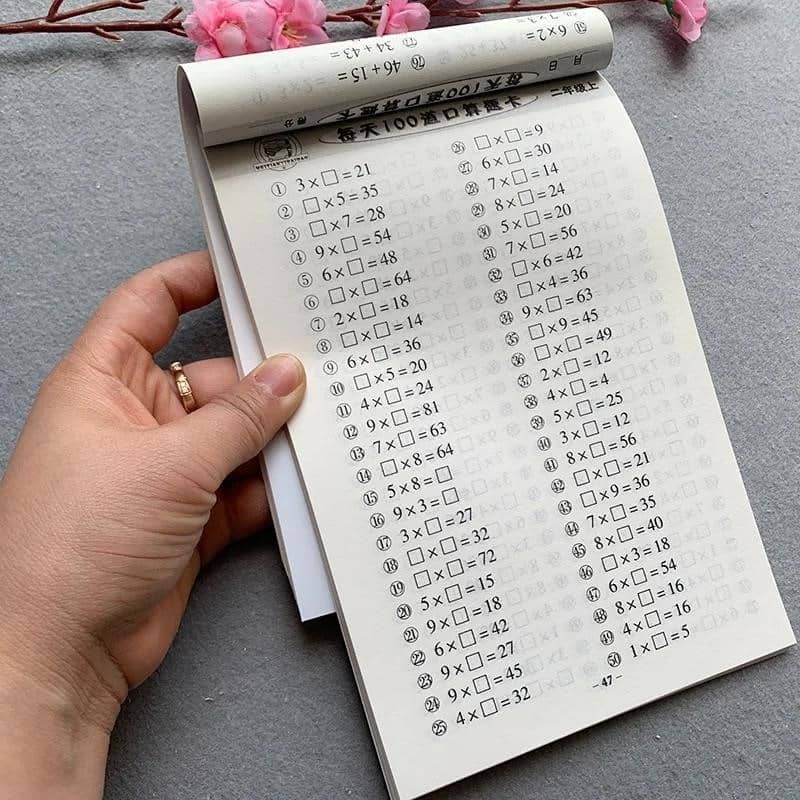 51 6×2=
77 34+43=
76 46+15=
月 日
得分
每天100道口算题卡
每天100道口算题卡
二年级上
① 3×□=21
② □×5=35
③ □×7=28
④ 9×□=54
⑤ 6×□=48
⑥ □×□=64
⑦ 2×□=18
⑧ □×□=14
⑨ 6×□=36
⑩ □×5=20
⑪ 4×□=24
⑫ 9×□=81
⑬ 7×□=63
⑭ □×8=64
⑮ 5×8=□
⑯ 9×3=□
⑰ 3×□=27
⑱ □×□=32
⑲ □×□=72
⑳ 5×□=15
㉑ 9×□=18
㉒ 6×□=42
㉓ 9×□=27
㉔ 9×□=45
㉕ 4×□=32
㉖ □×□=9
㉗ 6×□=30
㉘ 7×□=14
㉙ 8×□=24
㉚ 5×□=20
㉛ 7×□=56
㉜ □×6=42
㉝ □×4=36
㉞ 9×□=63
㉟ □×9=45
㊱ □×□=49
㊲ 2×□=12
㊳ 4×□=4
㊴ 5×□=25
㊵ 3×□=12
㊶ 8×□=56
㊷ □×□=21
㊸ □×9=36
㊹ 7×□=35
㊺ 8×□=40
㊻ □×3=18
㊼ 6×□=54
㊽ 8×□=16
㊾ 4×□=16
㊿ 1×□=5
-47-